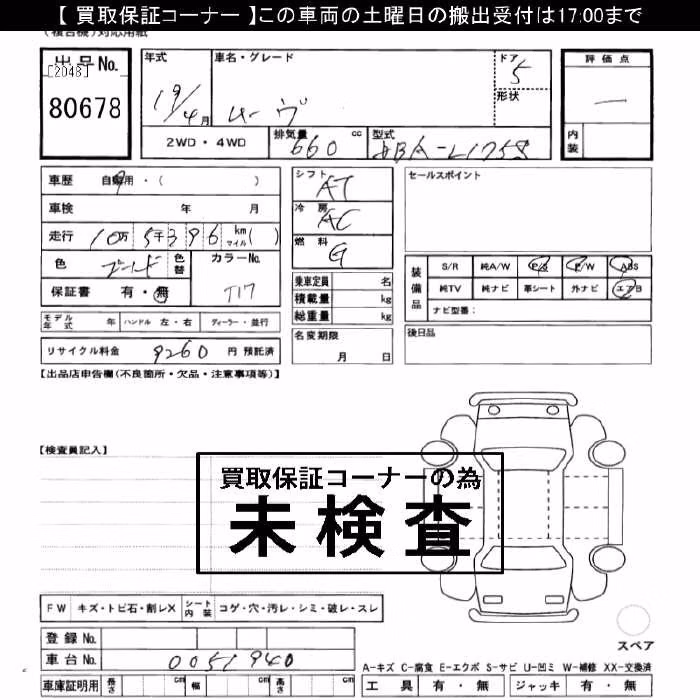 【 買取保証コーナー 】この車両の土曜日の搬出受付は17:00まで
(複合機)対応用紙
出品No.
[2048]
80678
年式
19/4月
車名・グレード
ムーヴ
ドア
5
形状
評価点
一
内装
2WD・4WD
排気量 660 cc
型式 DBA-L175S
車歴 自家用・( )
車検 年 月
走行 10万5千396 km マイル( )
色 ゴールド 色替
カラーNo. T17
保証書 有・無
モデル年式 年 ハンドル 左・右 ディーラー・並行
リサイクル料金 9260 円 預託済
シフト AT
冷房 AC
燃料 G
乗車定員 名
積載量 kg
総重量 kg
名変期限
月 日
セールスポイント
装備品
S/R 純A/W P/S P/W ABS
純TV 純ナビ 革シート 外ナビ エアB
ナビ型番:
後日品
【出品店申告欄(不良箇所・欠品・注意事項等)】
【検査員記入】
買取保証コーナーの為
未検査
FW キズ・トビ石・割レX シート内装 コゲ・穴・汚レ・シミ・破レ・スレ
登録No.
車台No. 0051940
車庫証明用 長さ cm 幅 cm 高さ cm
スペア
A-キズ C-腐食 E-エクボ S-サビ U-凹ミ W-補修 XX-交換済
工具 有・無 ジャッキ 有・無